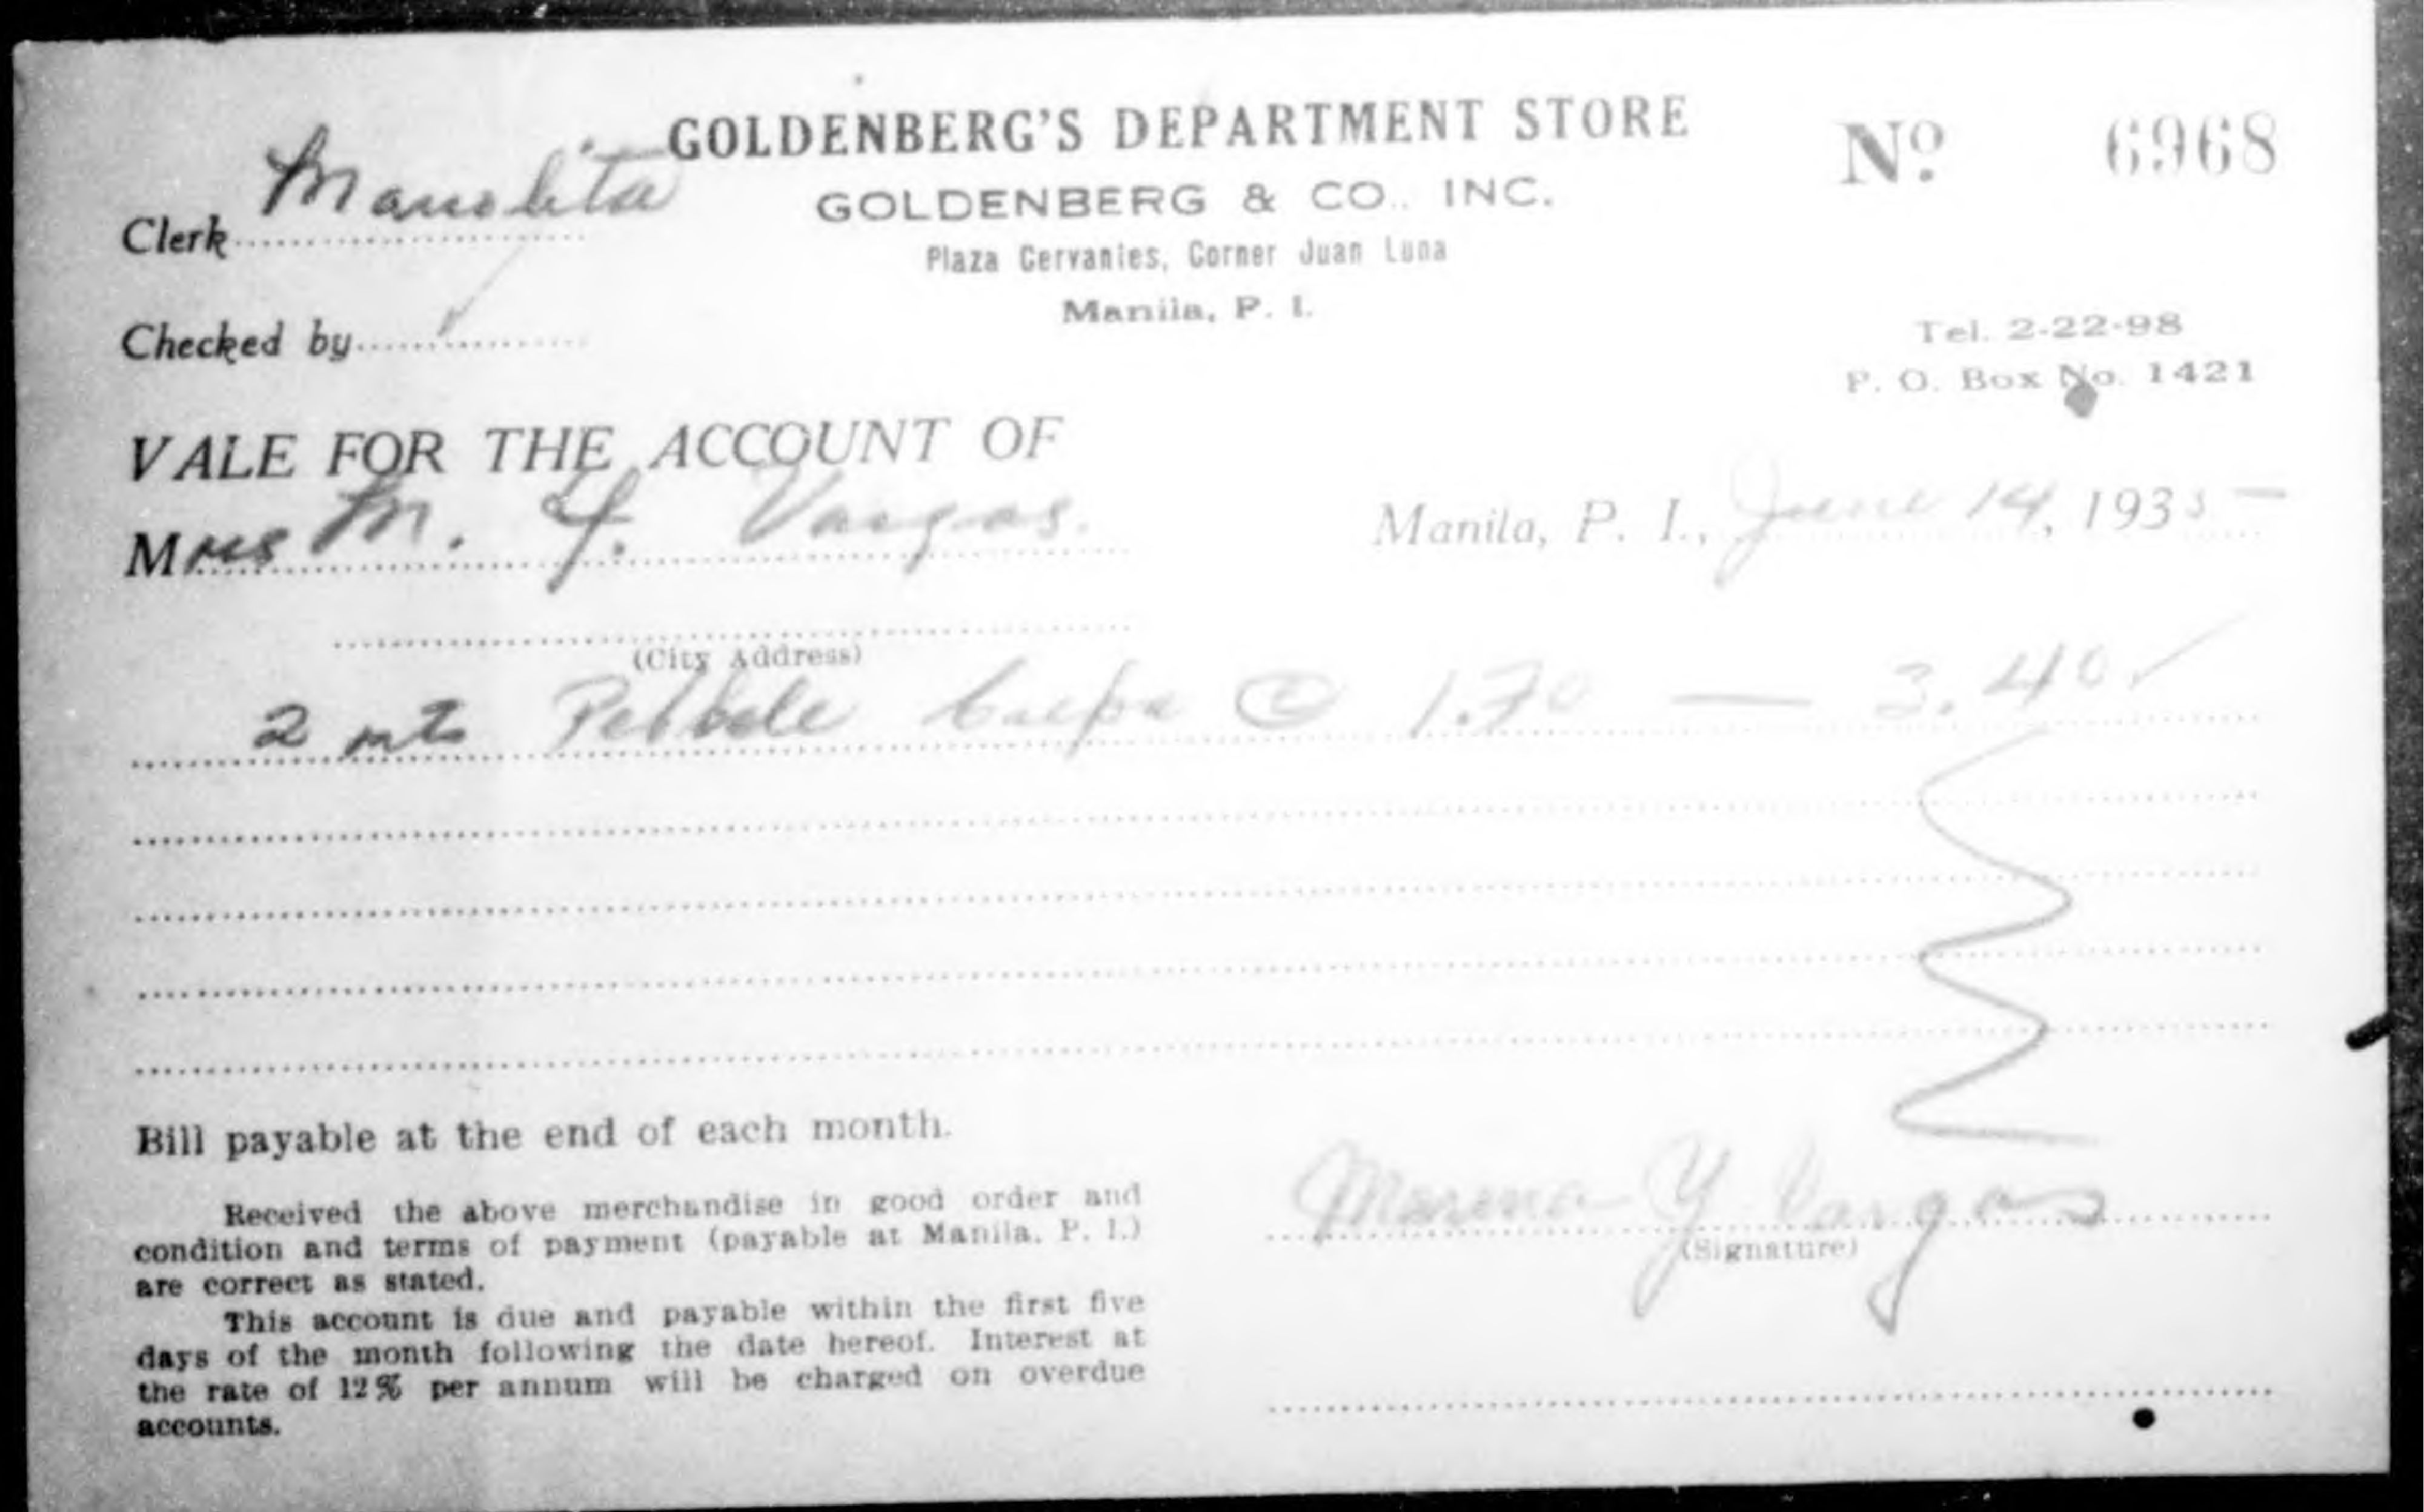 GOLDENBERG'S DEPARTMENT STORE
Nº 6968
GOLDENBERG & CO., INC.
Clerk Manolita
Plaza Cervantes, Corner Juan Luna
Manila, P. I.
Checked by
Tel. 2-22-98
P. O. Box No. 1421
VALE FOR THE ACCOUNT OF
Mrs M. Y. Vargas.
Manila, P. I., June 14, 1935
(City Address)
2 mts Pebble Crepe @ 1.70 — 3.40
Bill payable at the end of each month.
Received the above merchandise in good order and
condition and terms of payment (payable at Manila, P. I.)
are correct as stated.
This account is due and payable within the first five
days of the month following the date hereof. Interest at
the rate of 12% per annum will be charged on overdue
accounts.
Y Vargas
(Signature)